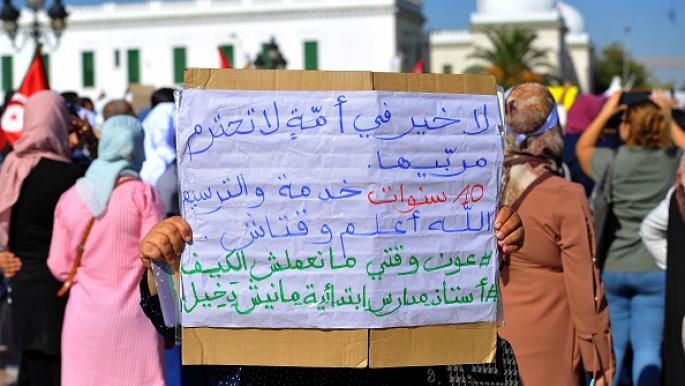 لا خير في أمّةٍ لا تحترم
مربّيها.
10 سنوات خدمة والترسيم
الله أعلم وقتاش.
#عون وقتي ما نعملش الكيف
#أستاذ مدارس ابتدائية مانيش دخيل